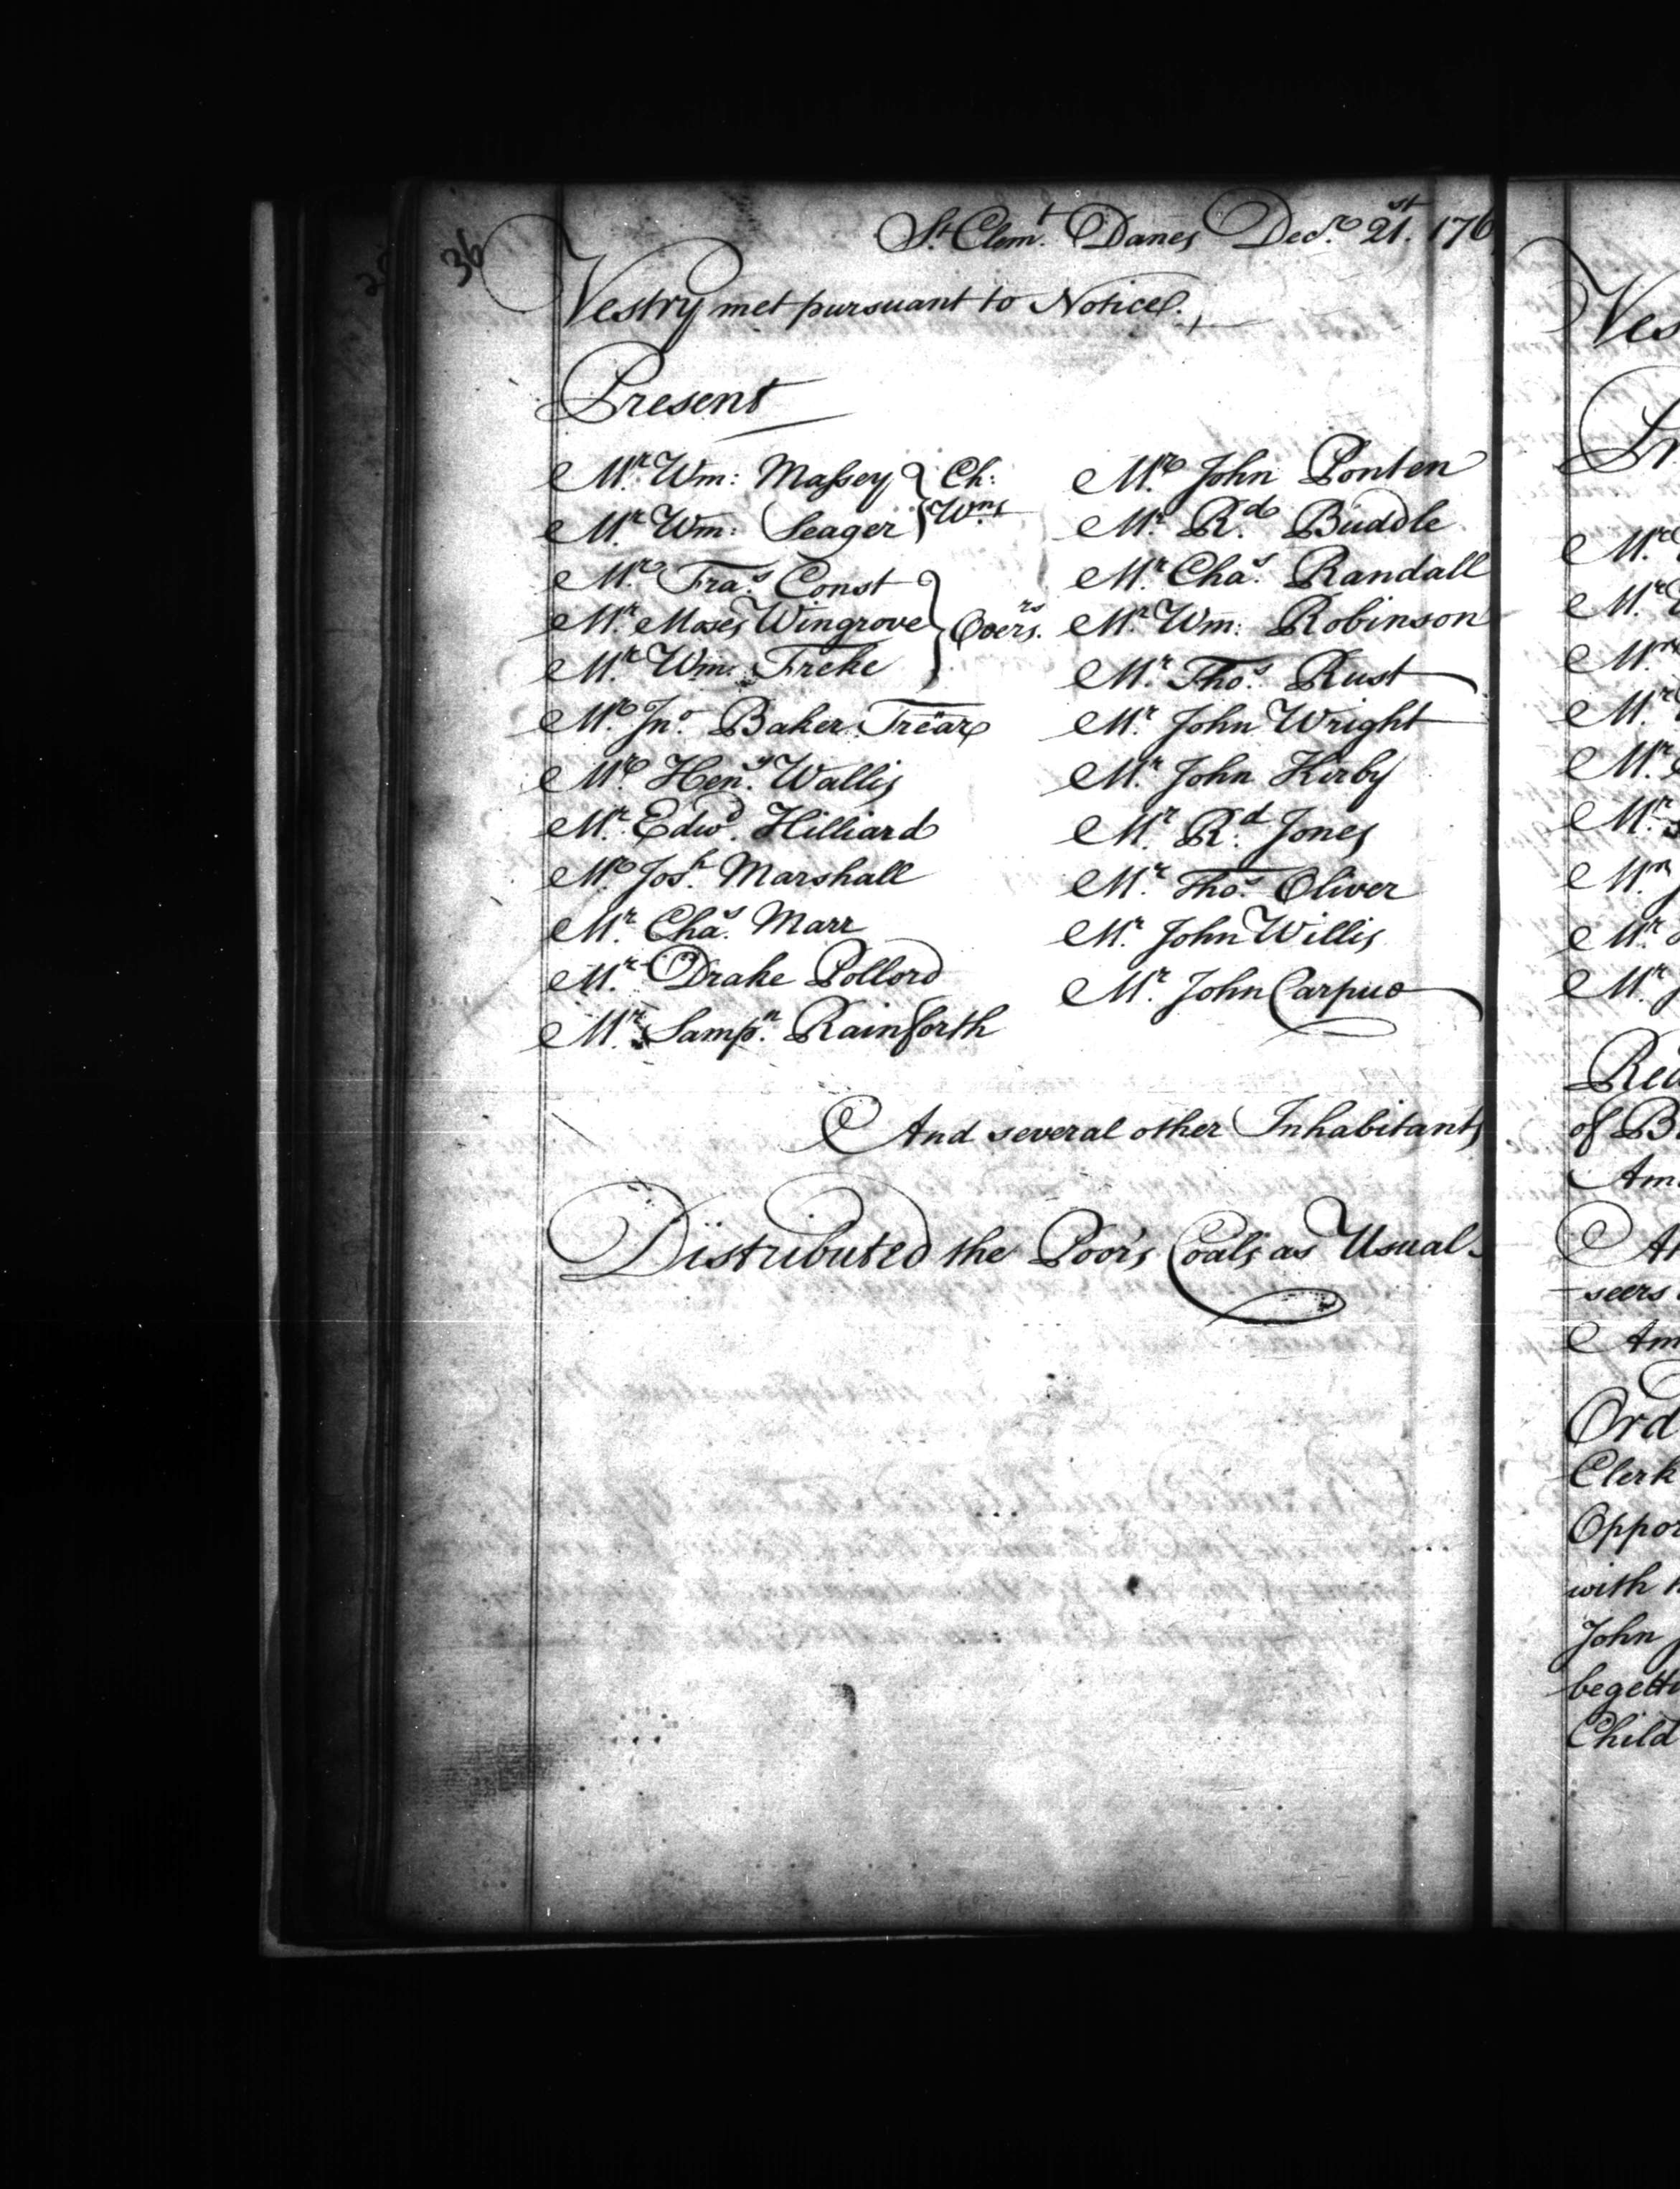 36
St. Clemt. Danes Decr. 21st. 176
Vestry met pursuant to Notice.
Present
Mr. Wm: Massey } Ch: Wns
Mr. Wm: Seager
Mr. Fras. Const } Overs.rs
Mr. Moses Wingrove
Mr. Wm. Freke
Mr. Jno. Baker Trear
Mr. Heny. Wallis
Mr. Edwd. Hilliard
Mr. Josh. Marshall
Mr. Chas. Marr
Mr. Drake Pollord
Mr. Sampn. Rainforth
Mr. John Ponten
Mr. Rd. Buddle
Mr. Chas. Randall
Mr. Wm: Robinson
Mr. Thos. Rust
Mr. John Wright
Mr. John Kirby
Mr. Rd. Jones
Mr. Thos. Oliver
Mr. John Willis
Mr. John Carpue
And several other Inhabitants
Distributed the Poor's Coals as Usual.
of B
seers
Ord
Clerk
Oppor
with
John
begetti
Child